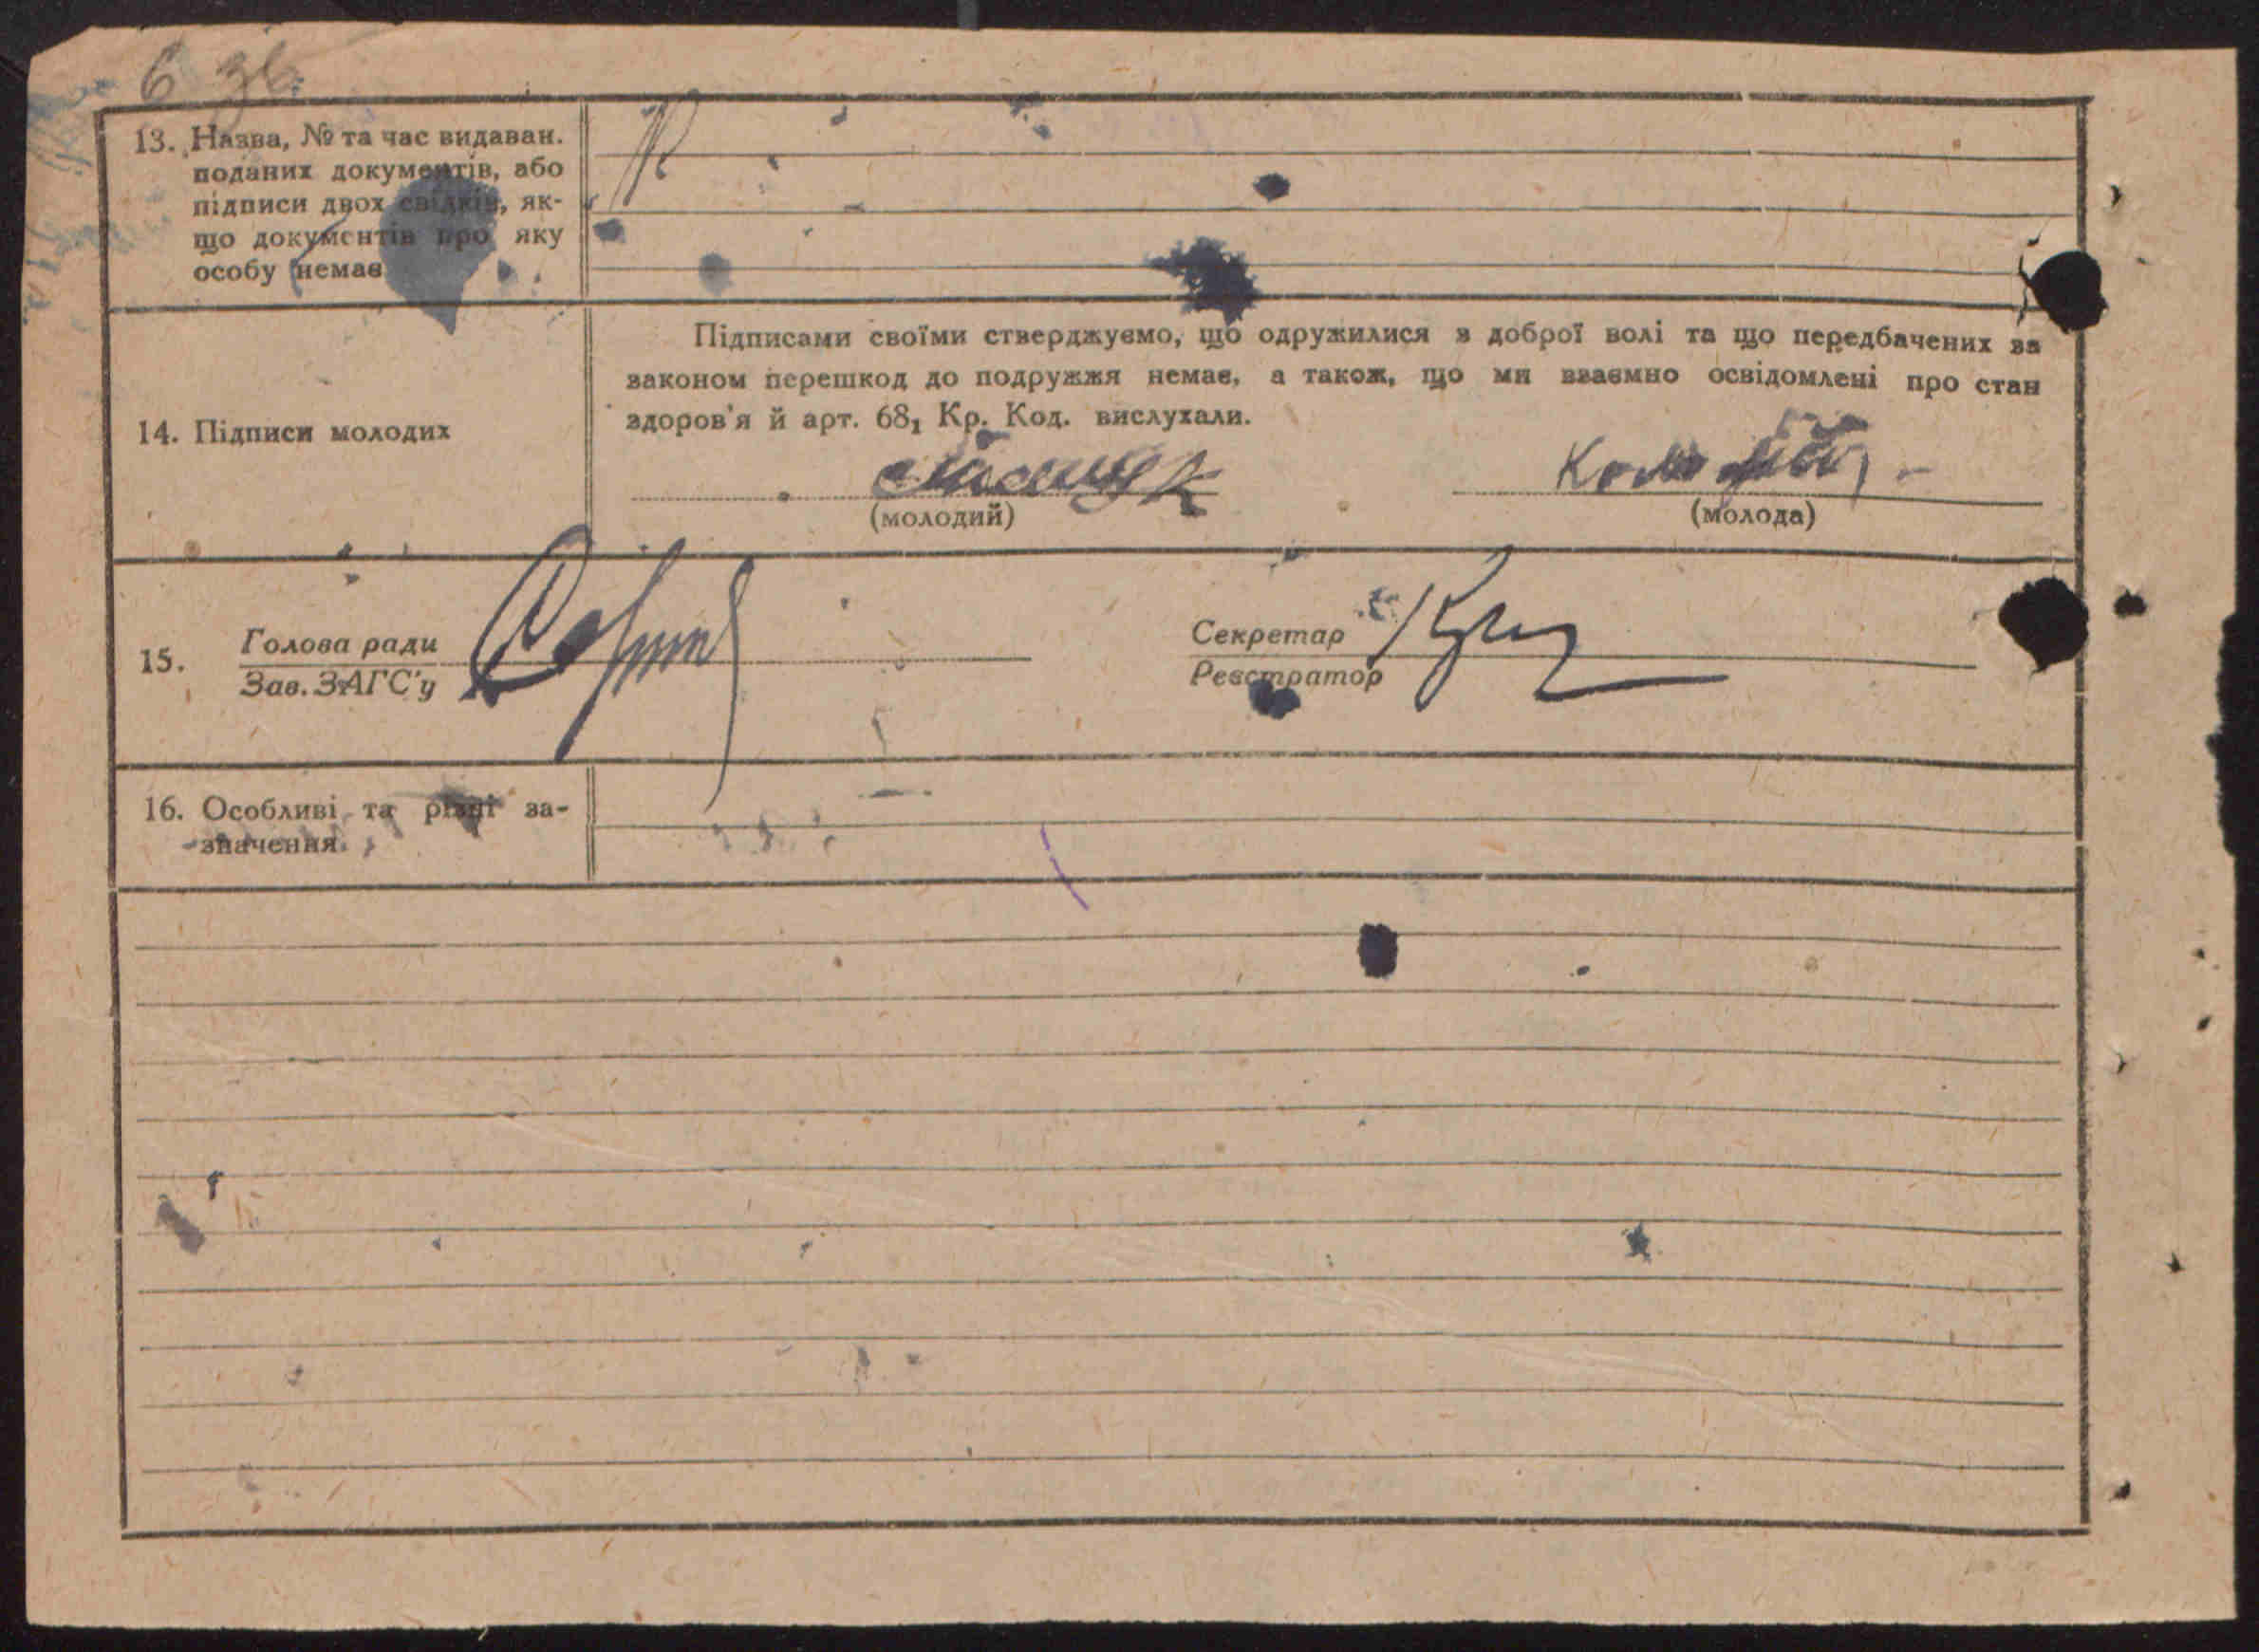 6 36
13. Назва, № та час видаван.
поданих документів, або
підписи двох свідків, як-
що документів про яку
особу немає
Підписами своїми стверджуємо, що одружилися з доброї волі та що передбачених за
законом перешкод до подружжя немає, а також, що ми взаємно освідомлені про стан
здоров'я й арт. 68₁ Кр. Код. вислухали.
14. Підписи молодих
(молодий) (молода)
15. Голова ради
Зав. ЗАГС'у
Секретар
Реєстратор
16. Особливі та різні за-
значення